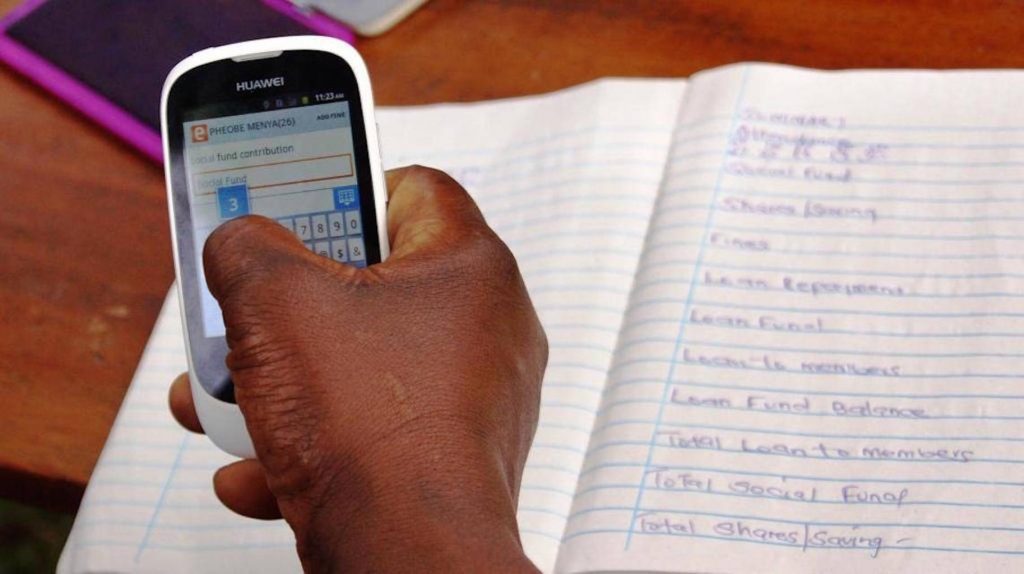 HUAWEI
11:23 AM
e PHEOBE MENYA(26) ADD FINE
Social fund contribution
Social Fund
3
7 8 9 0
$ &
Social Fund
Shares/Saving
Fines
Loan Repayment
Loan Fund
Loan to members
Loan Fund Balance
Total Loan to members
Total Social Fund
Total Shares/Saving -